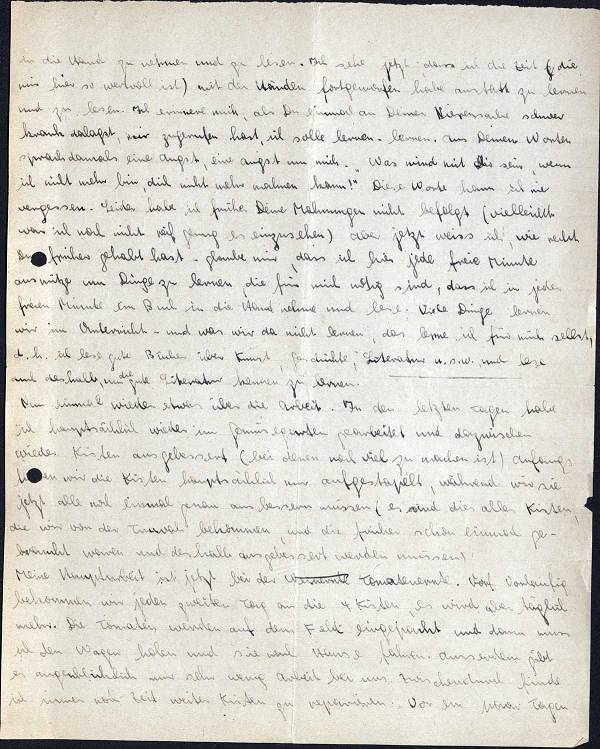 in die Hand zu nehmen und zu lesen. Ich sehe jetzt, dass ich die Zeit (die
mir hier so wertvoll ist) mit den Händen fortgeworfen habe anstatt zu lernen
und zu lesen. Ich erinnere mich, als Du einmal an Deiner schwer
krank dalagst, mir zugerufen hast, ich solle lernen - lernen. Aus Deinen Worten
sprach damals eine Angst, eine Angst um mich. "Was wird mit dir sein, wenn
ich nicht mehr bin, dich nicht mehr mahnen kann!" Diese Worte kann ich nie
vergessen. Leider habe ich früher Deine Mahnungen nicht befolgt (vielleicht
war ich noch nicht reif genug es einzusehen) aber jetzt weiss ich, wie recht
Du früher gehabt hast - glaube mir, dass ich hier jede freie Minute
ausnütze um Dinge zu lernen, die für mich nötig sind, dass ich in jeder
freien Minute ein Buch in die Hand nehme und lese. Viele Dinge lernen
wir im Unterricht - und was wir da nicht lernen, das lerne ich für mich selbst,
d.h. ich lese gute Bücher über Kunst, Geschichte, Literatur u.s.w. und lese
auch deshalb, um die gute Literatur kennen zu lernen.
Nun einmal wieder etwas über die Arbeit. In den letzten Tagen habe
ich hauptsächlich wieder im Gemüsegarten gearbeitet und dazwischen
wieder Kisten ausgebessert (bei denen noch viel zu machen ist) anfangs
haben wir die Kisten hauptsächlich nur aufgestapelt, während wir sie
jetzt alle noch einmal genau ausbessern müssen (es sind dies alles Kisten,
die wir von der bekommen, und die früher schon einmal ge-
braucht waren und deshalb ausgebessert werden müssen)
Meine Hauptarbeit ist jetzt bei der Tomatenernte. Vorläufig
bekommen wir jeden zweiten Tag an die 4 Kisten, es wird aber täglich
mehr. Die Tomaten werden auf dem Feld eingepackt und dann muss
ich den Wagen holen und sie nach Hause führen. Ausserdem gibt
es augenblicklich nur sehr wenig Arbeit bei uns. Zwischendurch finde
ich immer noch Zeit weiter Kisten zu reparieren. Vor ein paar Tagen